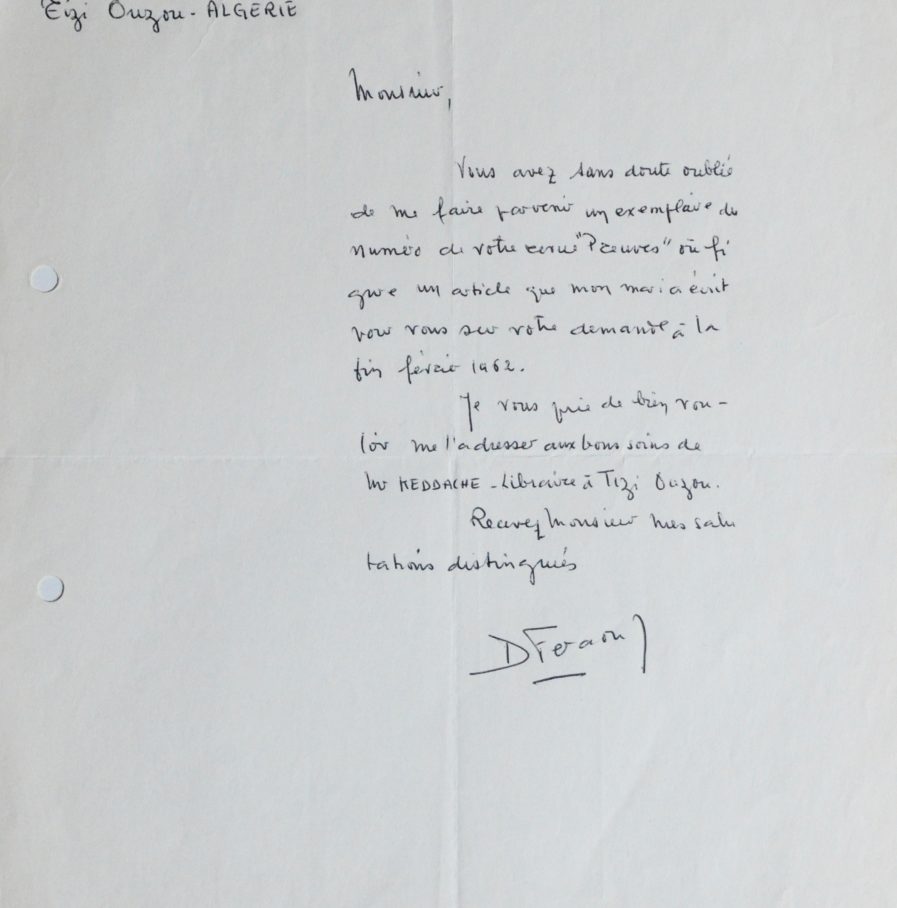 Tizi Ouzou - ALGERIE
Monsieur,
Vous avez sans doute oublié
de me faire parvenir un exemplaire du
numéro de votre revue "Preuves" où fi
gure un article que mon mari a écrit
pour vous sur votre demande à la
fin février 1962.
Je vous prie de bien vou-
loir me l'adresser aux bons soins de
Mr KEDDACHE - Libraire à Tizi Ouzou.
Recevez Monsieur mes salu
tations distinguées
DFeraoun